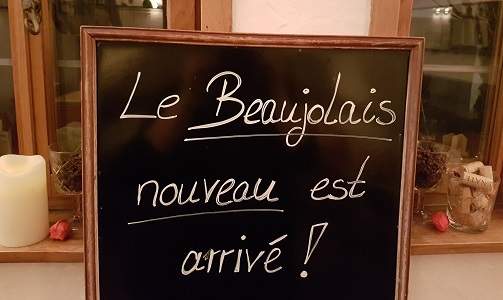 Le Beaujolais
nouveau est
arrivé !